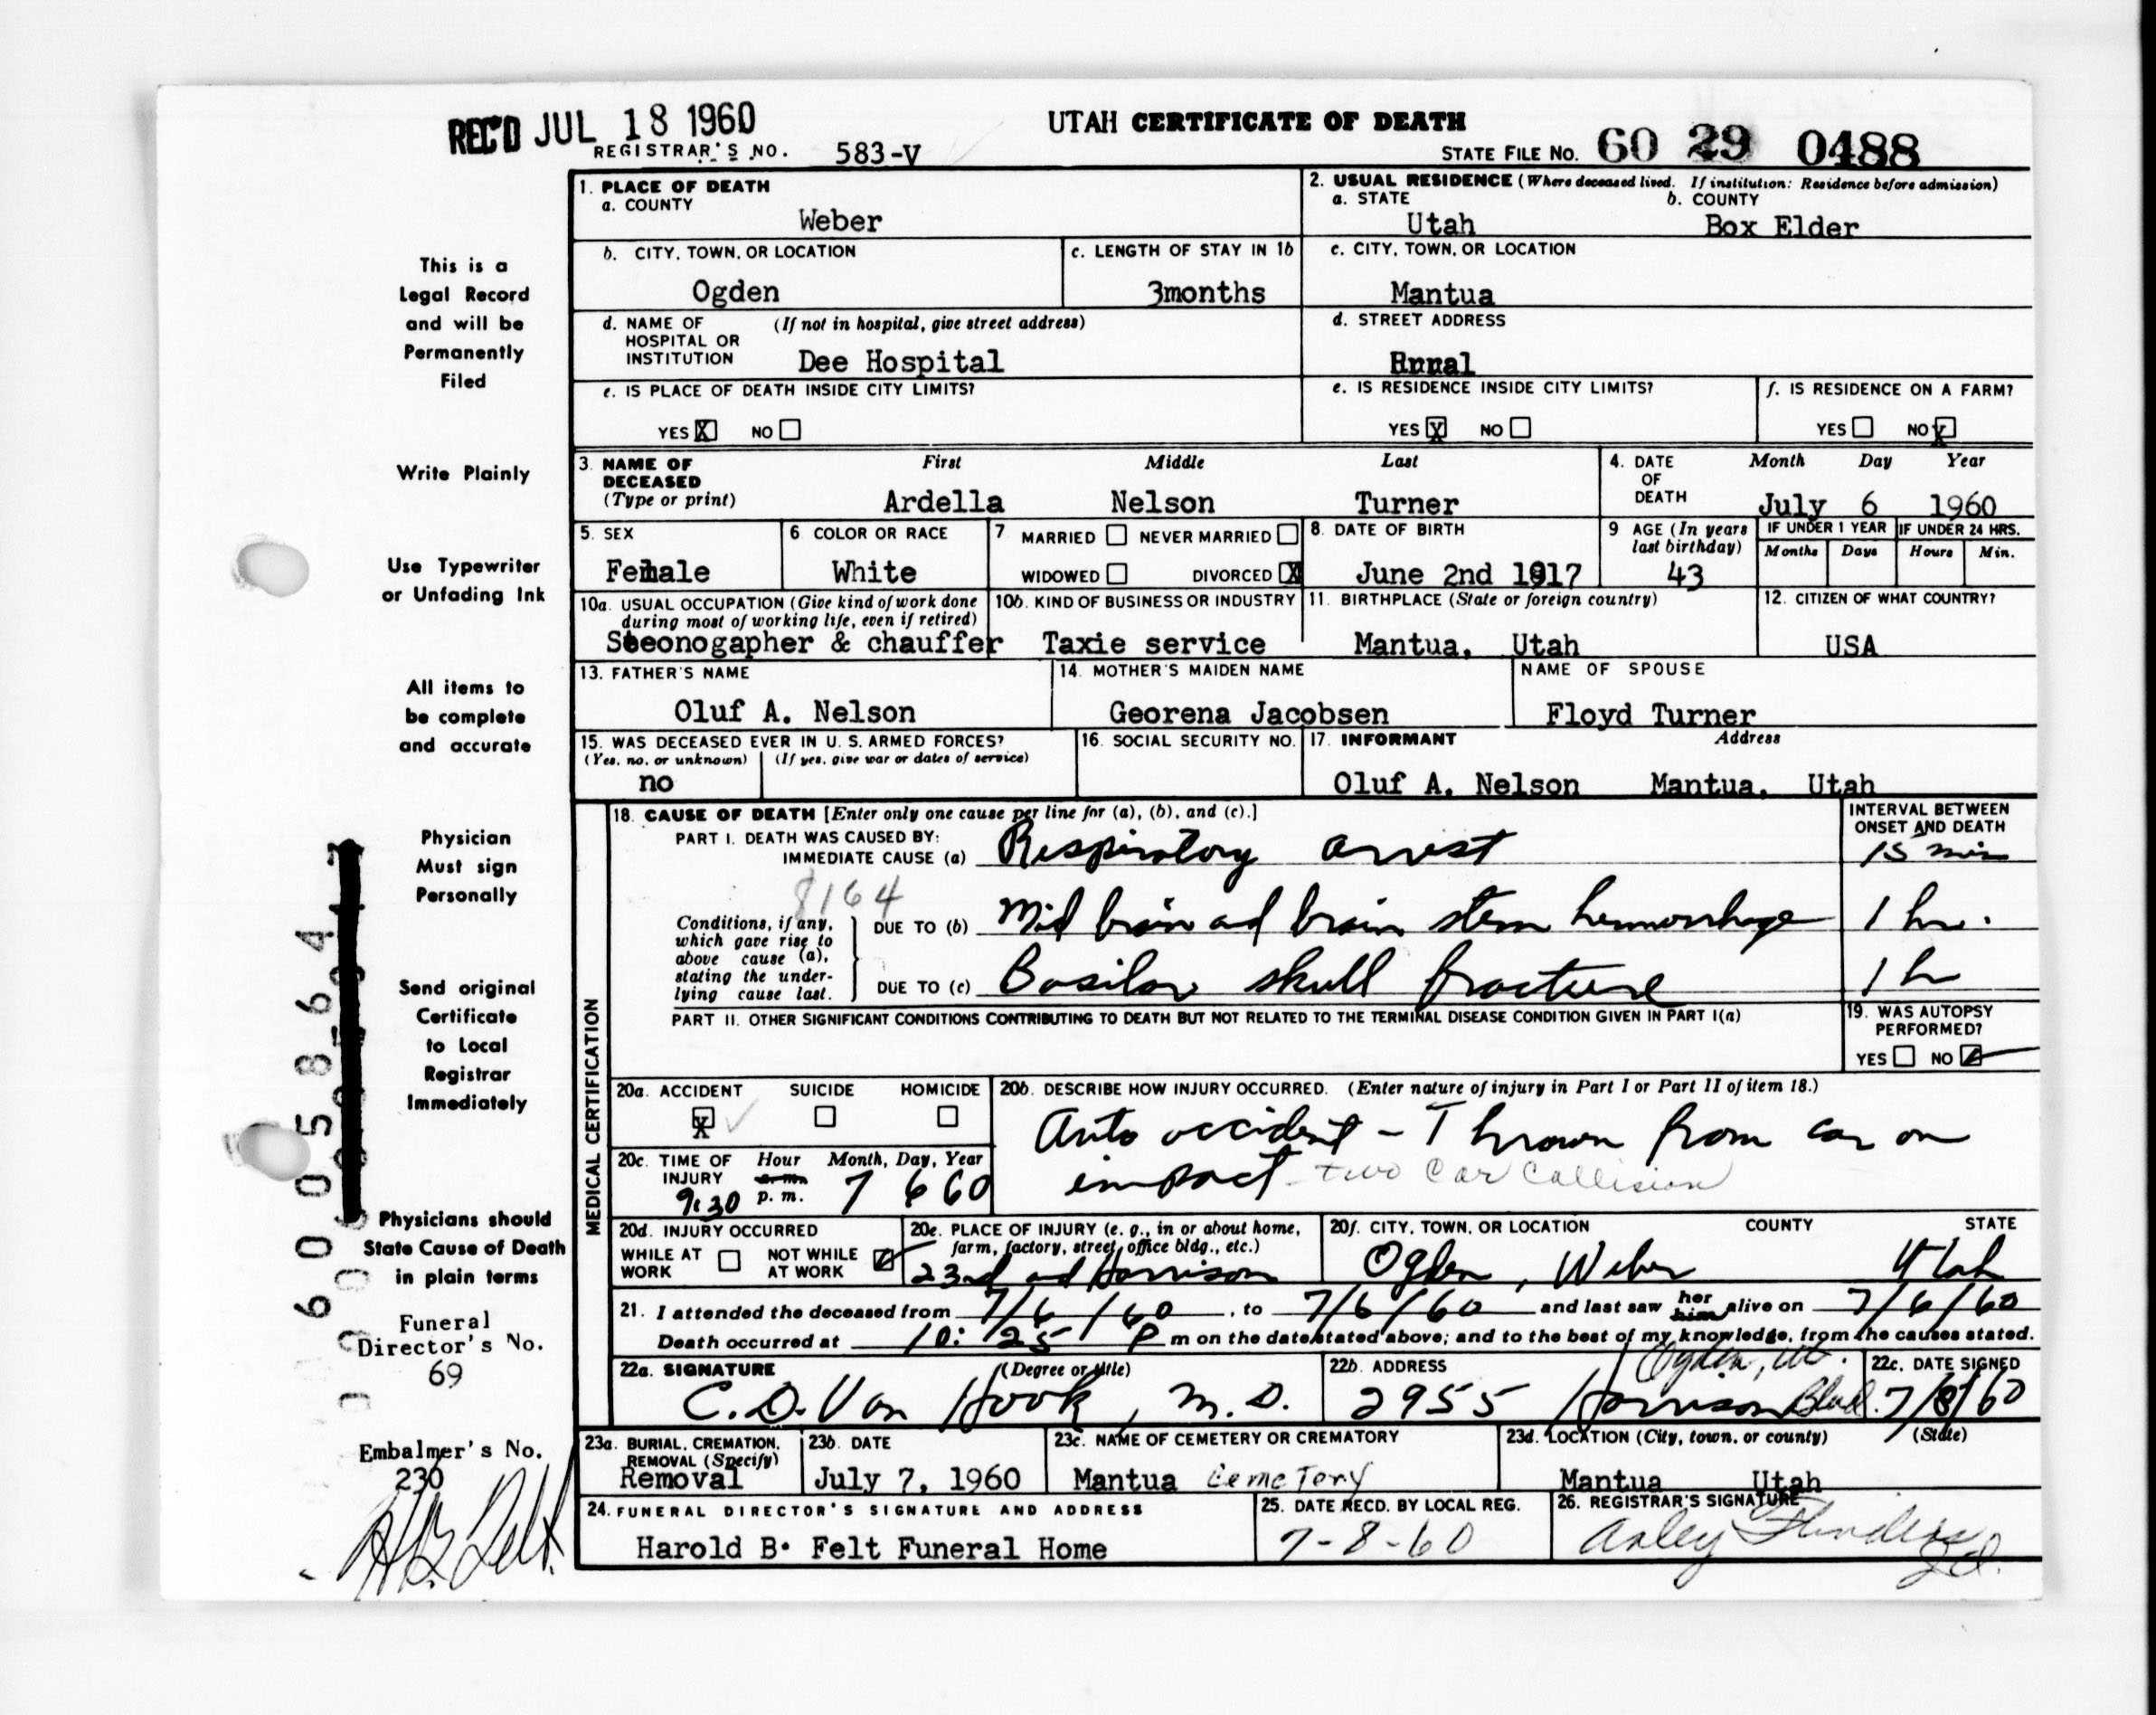 REC'D JUL 18 1960
UTAH CERTIFICATE OF DEATH
REGISTRAR'S NO. 583-V
STATE FILE NO. 60 29 0488
This is a
Legal Record
and will be
Permanently
Filed
Write Plainly
Use Typewriter
or Unfading Ink
All items to
be complete
and accurate
Physician
Must sign
Personally
Send original
Certificate
to Local
Registrar
Immediately
Physicians should
State Cause of Death
in plain terms
Funeral
Director's No.
69
Embalmer's No.
230
1. PLACE OF DEATH
a. COUNTY
Weber
2. USUAL RESIDENCE (Where deceased lived. If institution: Residence before admission)
a. STATE b. COUNTY
Utah Box Elder
b. CITY, TOWN, OR LOCATION
Ogden
c. LENGTH OF STAY IN 1b
3months
c. CITY, TOWN, OR LOCATION
Mantua
d. NAME OF (If not in hospital, give street address)
HOSPITAL OR
INSTITUTION Dee Hospital
d. STREET ADDRESS
e. IS PLACE OF DEATH INSIDE CITY LIMITS?
YES X NO
e. IS RESIDENCE INSIDE CITY LIMITS?
YES X NO
f. IS RESIDENCE ON A FARM?
YES NO X
3. NAME OF First Middle Last
DECEASED
(Type or print) Ardella Nelson Turner
4. DATE Month Day Year
OF
DEATH July 6 1960
5. SEX
Female
6 COLOR OR RACE
White
7 MARRIED NEVER MARRIED
WIDOWED DIVORCED X
8. DATE OF BIRTH
June 2nd 1917
9 AGE (In years
last birthday)
43
IF UNDER 1 YEAR IF UNDER 24 HRS.
Months Days Hours Min.
10a. USUAL OCCUPATION (Give kind of work done
during most of working life, even if retired)
Steonogapher & chauffer
10b. KIND OF BUSINESS OR INDUSTRY
Taxie service
11. BIRTHPLACE (State or foreign country)
Mantua, Utah
12. CITIZEN OF WHAT COUNTRY?
USA
13. FATHER'S NAME
Oluf A. Nelson
14. MOTHER'S MAIDEN NAME
Georena Jacobsen
NAME OF SPOUSE
Floyd Turner
15. WAS DECEASED EVER IN U. S. ARMED FORCES?
(Yes, no, or unknown) (If yes, give war or dates of service)
no
16. SOCIAL SECURITY NO.
17. INFORMANT Address
Oluf A. Nelson Mantua, Utah
MEDICAL CERTIFICATION
18. CAUSE OF DEATH [Enter only one cause per line for (a), (b), and (c).]
INTERVAL BETWEEN
ONSET AND DEATH
PART I. DEATH WAS CAUSED BY:
IMMEDIATE CAUSE (a) Respiratory arrest 15 min
8164
Conditions, if any,
which gave rise to
above cause (a),
stating the under-
lying cause last.
DUE TO (b) Mid brain and brain stem hemorrhage 1 hr.
DUE TO (c) Basilar skull fracture 1 hr
PART II. OTHER SIGNIFICANT CONDITIONS CONTRIBUTING TO DEATH BUT NOT RELATED TO THE TERMINAL DISEASE CONDITION GIVEN IN PART I(a)
19. WAS AUTOPSY
PERFORMED?
YES NO
20a. ACCIDENT SUICIDE HOMICIDE
X
20b. DESCRIBE HOW INJURY OCCURRED. (Enter nature of injury in Part I or Part II of item 18.)
Auto accident - Thrown from car on
impact - two car collision
20c. TIME OF Hour Month, Day, Year
INJURY a.m.
9:30 p. m. 7 6 60
20d. INJURY OCCURRED
WHILE AT NOT WHILE
WORK AT WORK
20e. PLACE OF INJURY (e. g., in or about home,
farm, factory, street, office bldg., etc.)
23rd and Harrison
20f. CITY, TOWN, OR LOCATION COUNTY STATE
Ogden, Weber Utah
21. I attended the deceased from 7/6/60, to 7/6/60 and last saw her him alive on 7/6/60
Death occurred at 10:25 P m on the date stated above; and to the best of my knowledge, from the causes stated.
22a. SIGNATURE (Degree or title)
C. D. Van Hook, M. D.
22b. ADDRESS Ogden, Ut.
2955 Harrison Blvd.
22c. DATE SIGNED
7/8/60
23a. BURIAL, CREMATION,
REMOVAL (Specify)
Removal
23b. DATE
July 7, 1960
23c. NAME OF CEMETERY OR CREMATORY
Mantua Cemetery
23d. LOCATION (City, town, or county) (State)
Mantua Utah
24. FUNERAL DIRECTOR'S SIGNATURE AND ADDRESS
Harold B. Felt Funeral Home
25. DATE RECD. BY LOCAL REG.
7-8-60
26. REGISTRAR'S SIGNATURE